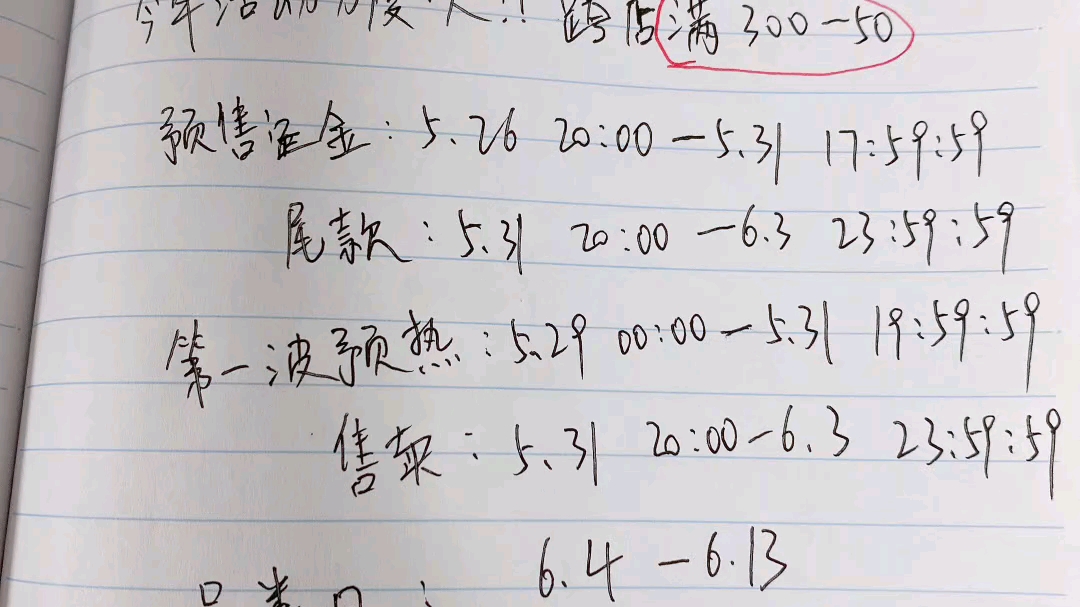 今年活动力度大!! 跨店满300-50
预售定金: 5.26 20:00-5.31 17:59:59
尾款: 5.31 20:00-6.3 23:59:59
第一波预热: 5.29 00:00-5.31 19:59:59
售卖: 5.31 20:00-6.3 23:59:59
品类日: 6.4-6.13